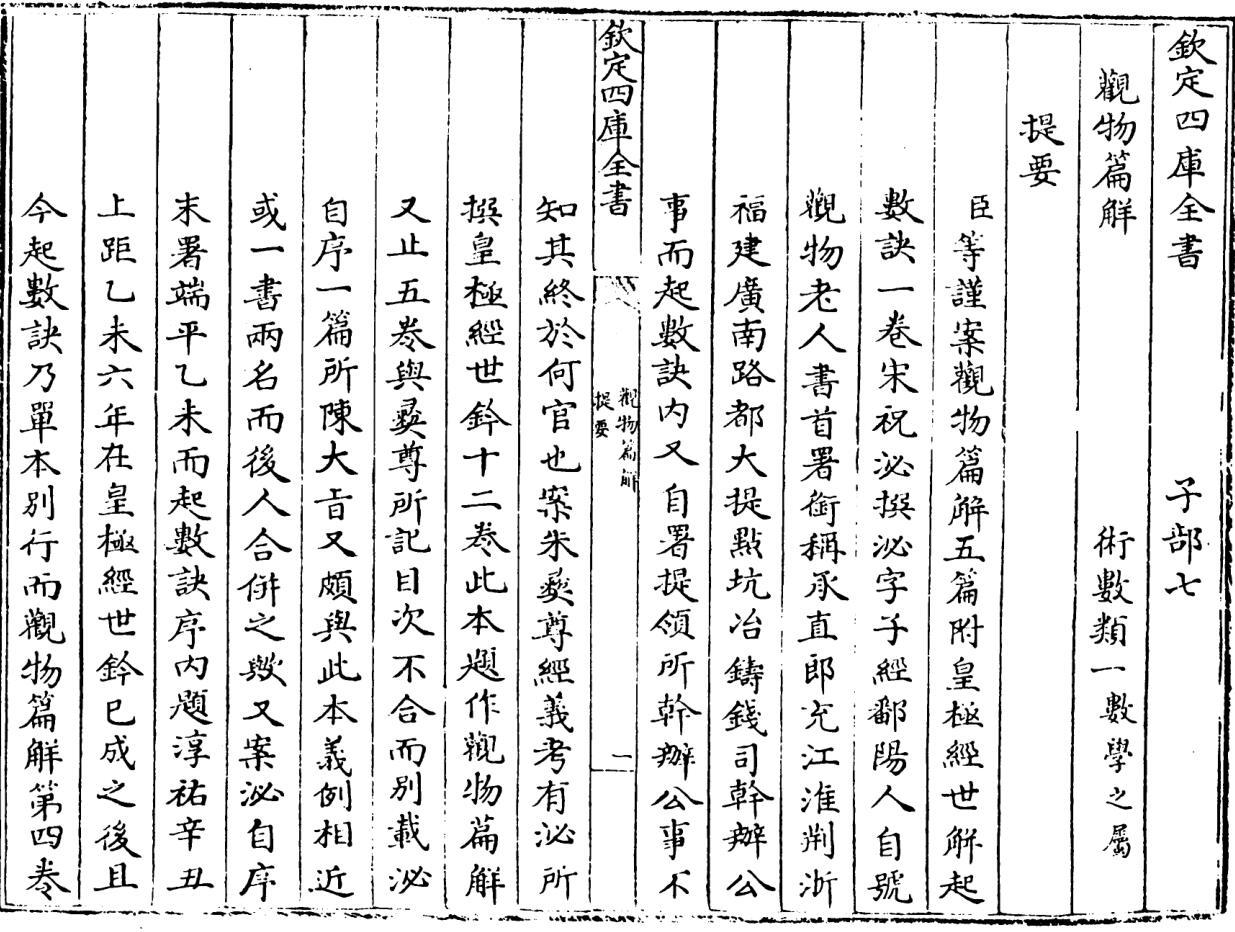 欽定四庫全書 子部七
觀物篇解 術數類一數學之屬
提要
臣等謹案觀物篇解五篇附皇極經世解起
數訣一卷宋祝泌撰泌字子經鄱陽人自號
觀物老人書首署銜稱承直郎充江淮荆浙
福建廣南路都大提㸃坑冶鑄錢司幹辦公
事而起數訣内又自署提領所幹辦公事不
欽定四庫全書
觀物篇解
提要
一
知其終於何官也案朱彝尊經義考有泌所
撰皇極經世鈐十二卷此本題作觀物篇解
又止五卷與彛尊所記目次不合而别載泌
自序一篇所陳大㫖又頗與此本義例相近
或一書兩名而後人合併之歟又案泌自序
末署端平乙未而起數訣序内題淳祐辛丑
上距乙未六年在皇極經世鈐已成之後且
今起數訣乃單本别行而觀物篇解第四卷